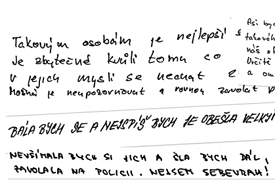 Takovým osobám je nejlepší
Je zbytečné kvůli tomu co
v jejich mysli se nechat
Možná je neupozorňovat a rovnou zavolat
Asi
Určitě
BÁLA BYCH SE A NEJSPÍŠ BYCH JE OBEŠLA
NEVŠÍMALA BYCH SI JICH A ŠLA BYCH DÁL,
ZAVOLALA NA POLICII. NEJSEM SEBEVRAH!